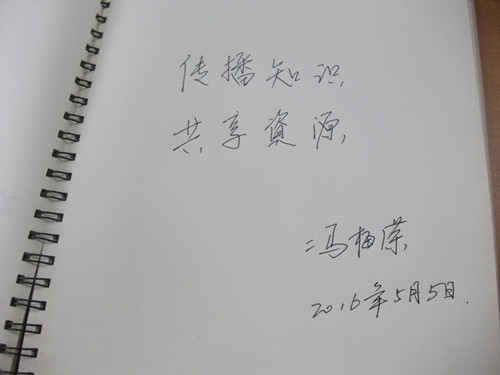 传播知识
共享資源
冯梅荣
2016年5月5日.